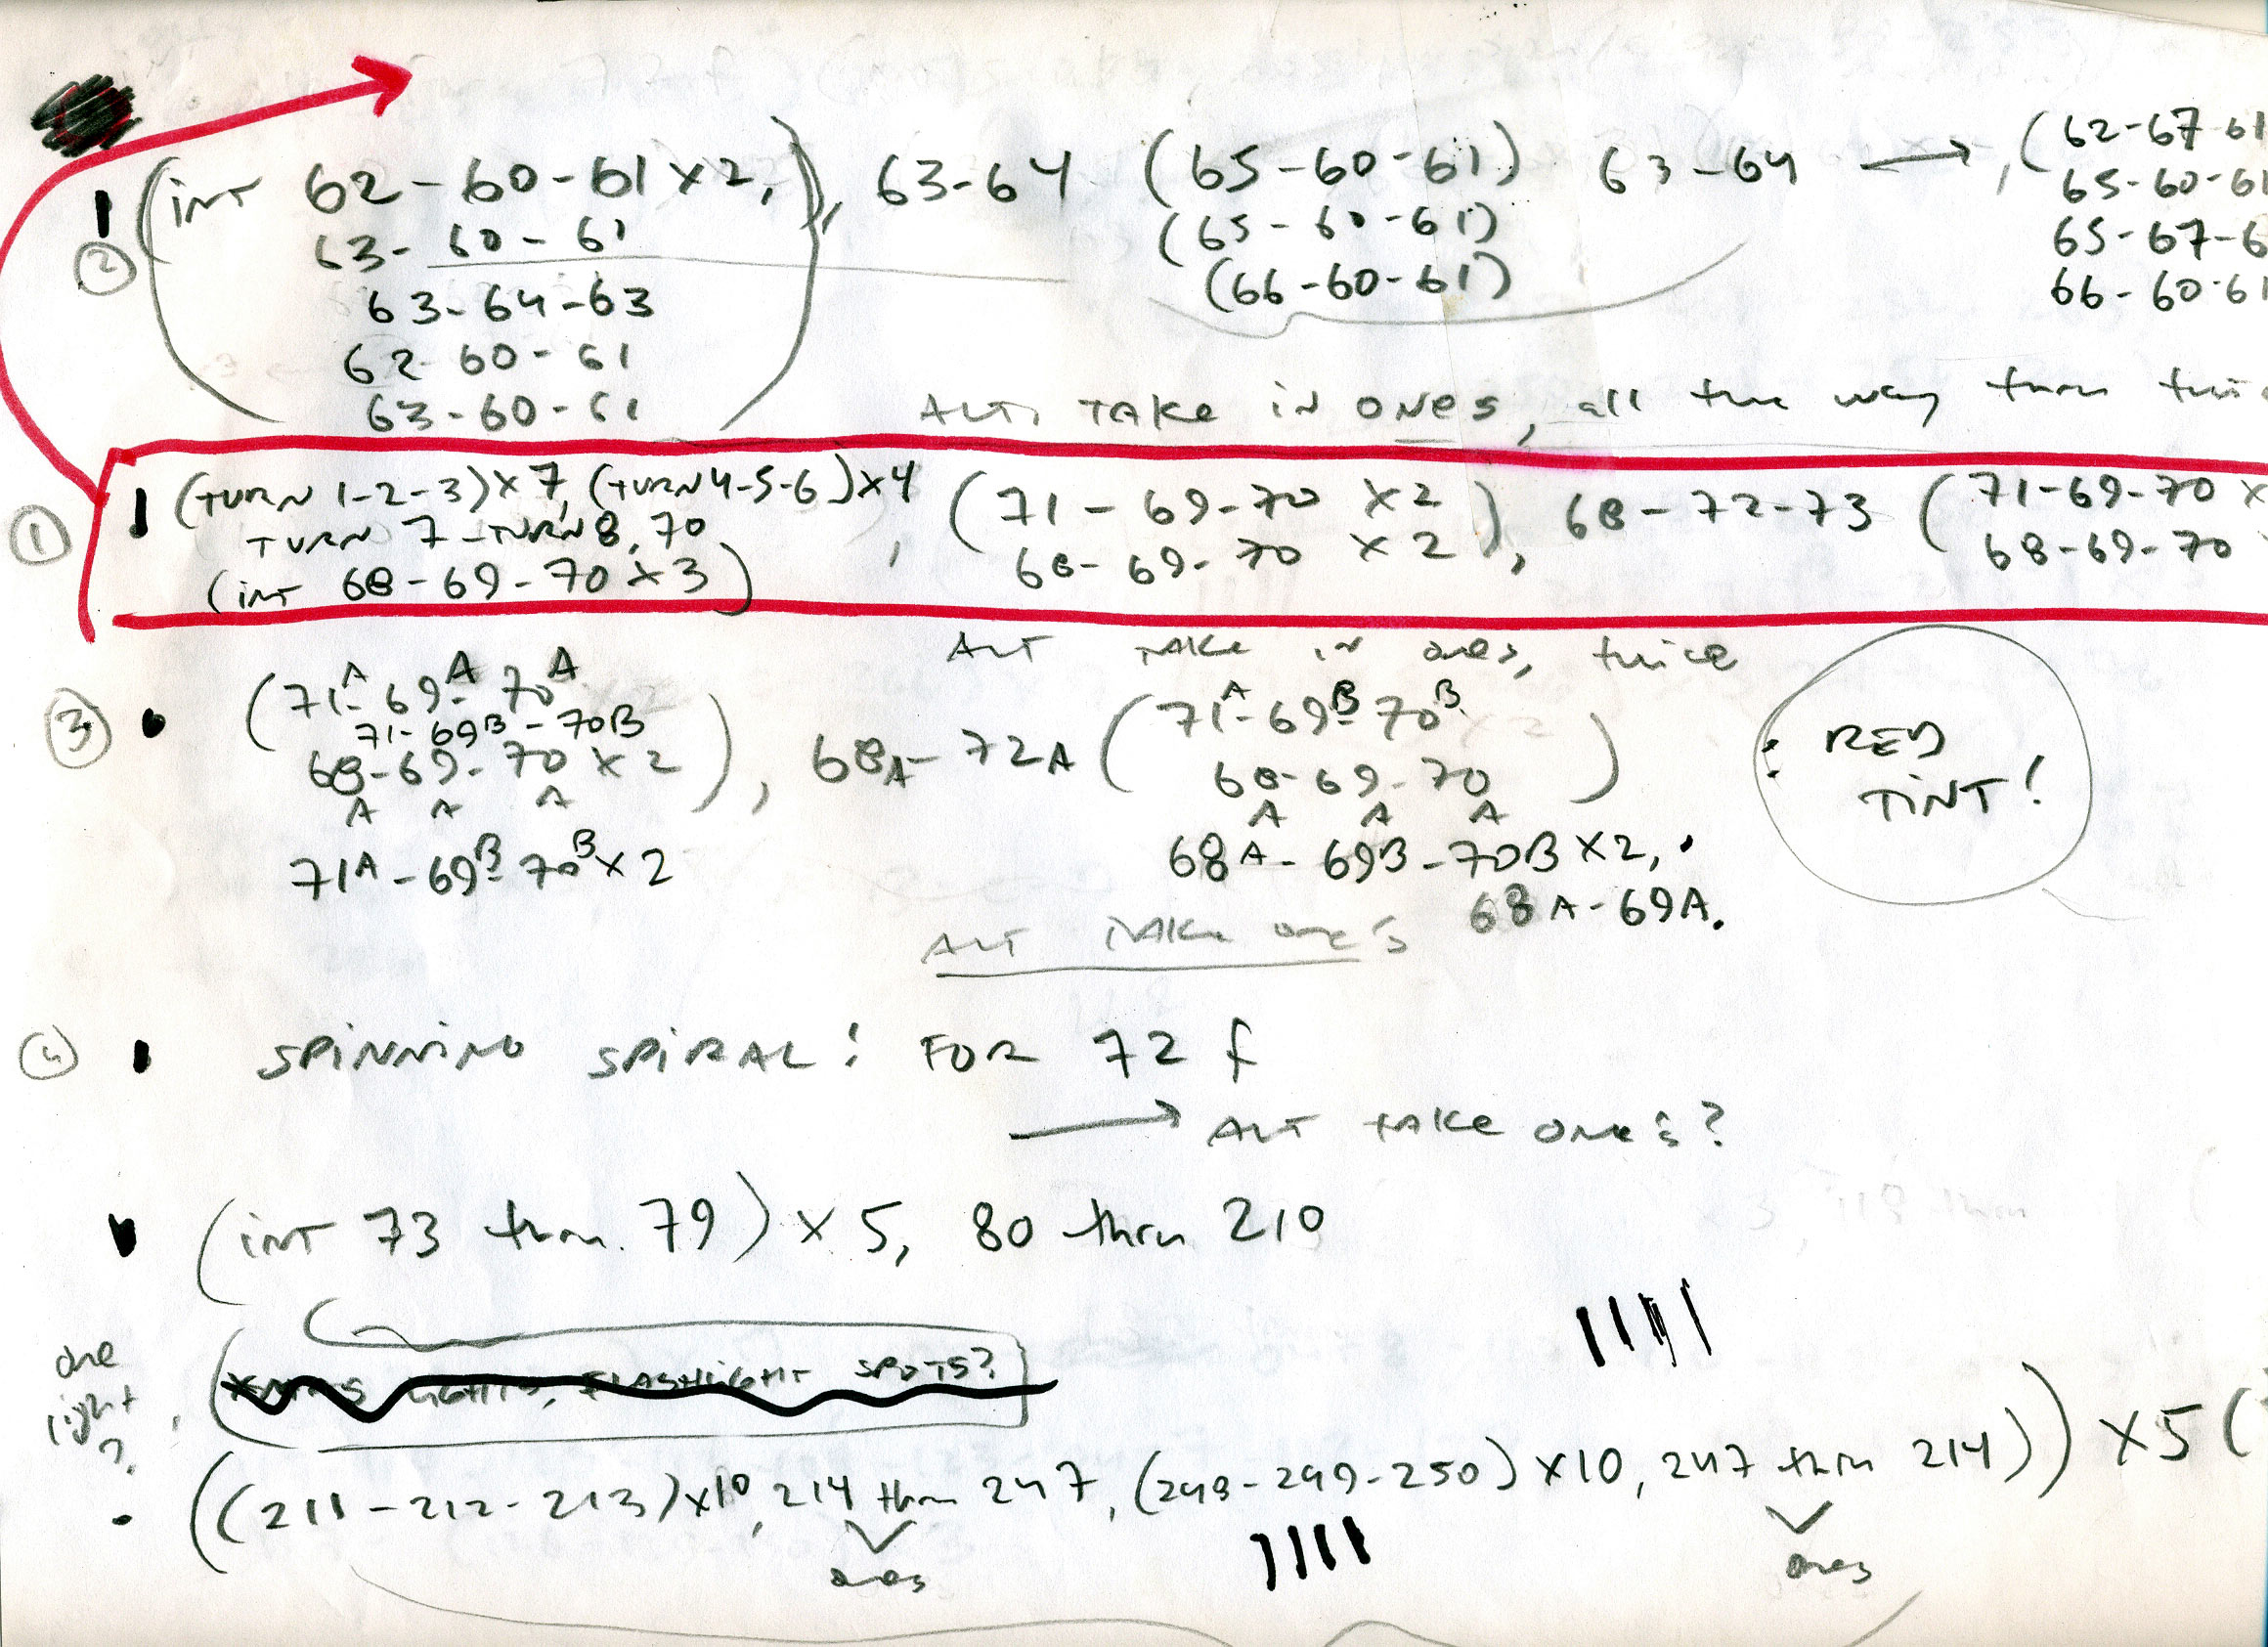 ② (int 62-60-61 x2,), 63-64 (65-60-61) 63-64 → , (62-67-61
63-60-61 (65-60-61) 65-60-61
63-64-63 (66-60-61) 65-67-6
62-60-61 66-60-61
63-60-61
ALT. TAKE in ones, all the way turn
① (TURN 1-2-3)x7, (TURN 4-5-6)x4, (71-69-70 x2), 68-72-73 (71-69-70 x
TURN 7-TURN 8, 70 68-69-70 x2, 68-69-70
(int 68-69-70 x3)
ALT TAKE in ones, twice
③ • (71A-69A-70A 71A-69B-70B
71-69B-70B
68-69-70 x2), 68A-72A (68-69-70)
A A A A A A
71A-69B-70B x2 68A-69B-70B x2, •
68A-69A.
: RED
TiNT!
ALT TAKE one's
④ SPiNNiNG SPiRAL! FOR 72 f
→ ALT TAKE one's?
(int 73 thru. 79) x 5, 80 thru 210
one
light
?
LIGHTS, FLASHLIGHT SPOTS?
• ((211-212-213)x10, 214 thru 247, (248-249-250)x10, 247 thru 214)) x5 (
ones ones